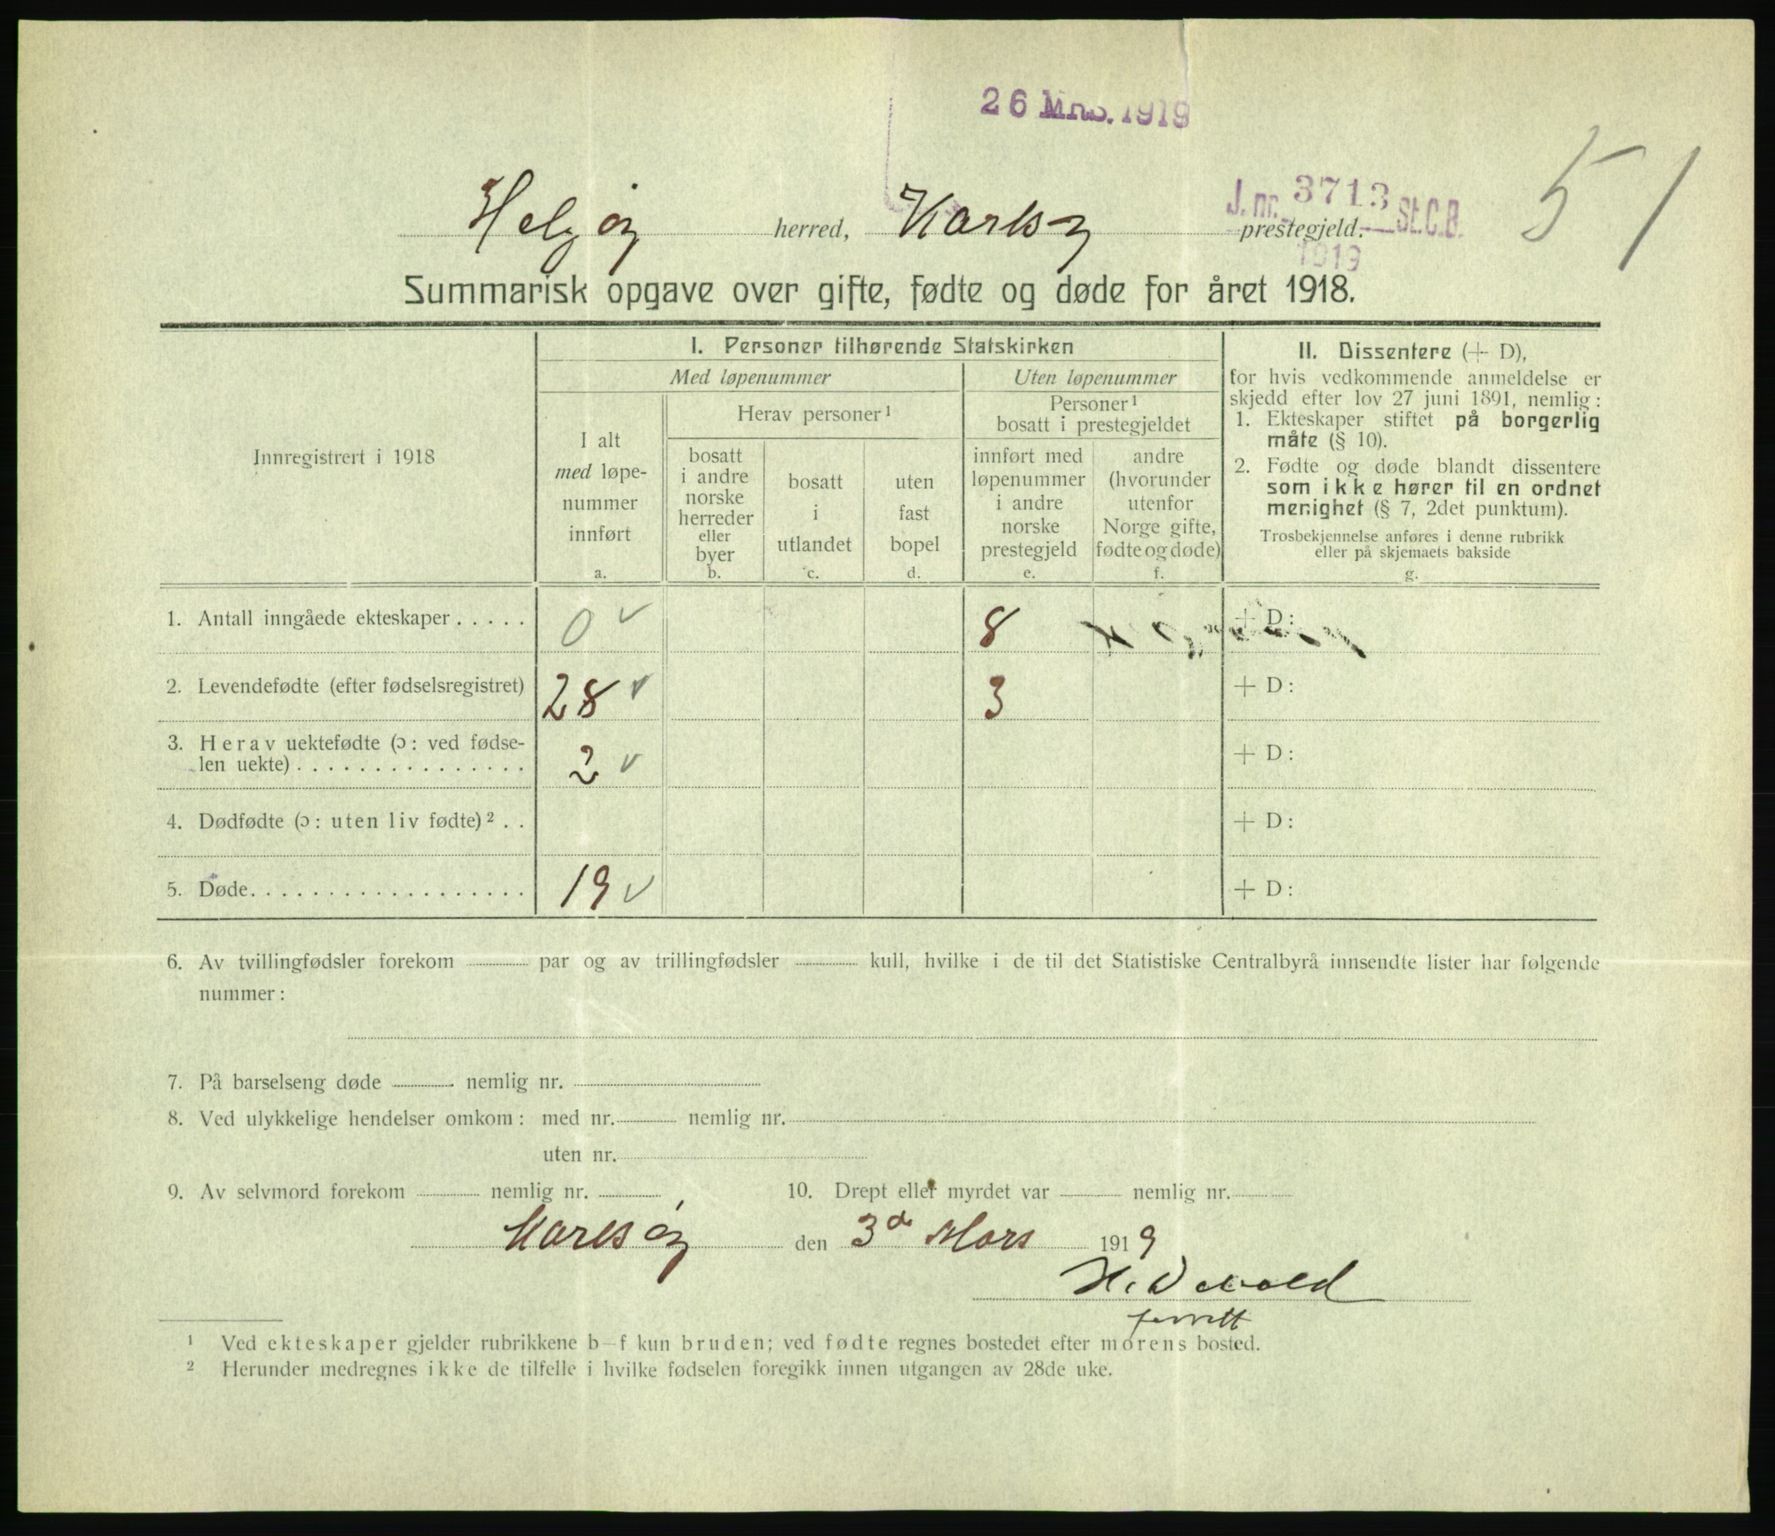 26 MRS. 1919
J. nr. 3713 St.C.B.
1919
51
Helgøy herred, Karlsøy prestegjeld.
Summarisk opgave over gifte, fødte og døde for året 1918.
Innregistrert i 1918
I. Personer tilhørende Statskirken
Med løpenummer
Uten løpenummer
I alt
med løpe-
nummer
innført
a.
Herav personer¹
bosatt
i andre
norske
herreder
eller
byer
b.
bosatt
i
utlandet
c.
uten
fast
bopel
d.
Personer¹
bosatt i prestegjeldet
innført med
løpenummer
i andre
norske
prestegjeld
e.
andre
(hvorunder
utenfor
Norge gifte,
fødte og døde)
f.
II. Dissentere (+ D),
for hvis vedkommende anmeldelse er
skjedd efter lov 27 juni 1891, nemlig:
1. Ekteskaper stiftet på borgerlig
måte (§ 10).
2. Fødte og døde blandt dissentere
som ikke hører til en ordnet
menighet (§ 7, 2det punktum).
Trosbekjennelse anføres i denne rubrikk
eller på skjemaets bakside
g.
1. Antall inngåede ekteskaper . . . . . 0 ✓ 8 + D:
2. Levendefødte (efter fødselsregistret) 28 ✓ 3 + D:
3. Herav uektefødte (ɔ: ved fødse-
len uekte) . . . . . . . . . . . . . . . 2 ✓ + D:
4. Dødfødte (ɔ: uten liv fødte)² . . + D:
5. Døde. . . . . . . . . . . . . . . . . . 19 ✓ + D:
6. Av tvillingfødsler forekom par og av trillingfødsler kull, hvilke i de til det Statistiske Centralbyrå innsendte lister har følgende
nummer:
7. På barselseng døde nemlig nr.
8. Ved ulykkelige hendelser omkom: med nr. nemlig nr.
uten nr.
9. Av selvmord forekom nemlig nr. 10. Drept eller myrdet var nemlig nr.
Karlsøy den 3de Mars 1919
¹ Ved ekteskaper gjelder rubrikkene b–f kun bruden; ved fødte regnes bostedet efter morens bosted.
² Herunder medregnes ikke de tilfelle i hvilke fødselen foregikk innen utgangen av 28de uke.